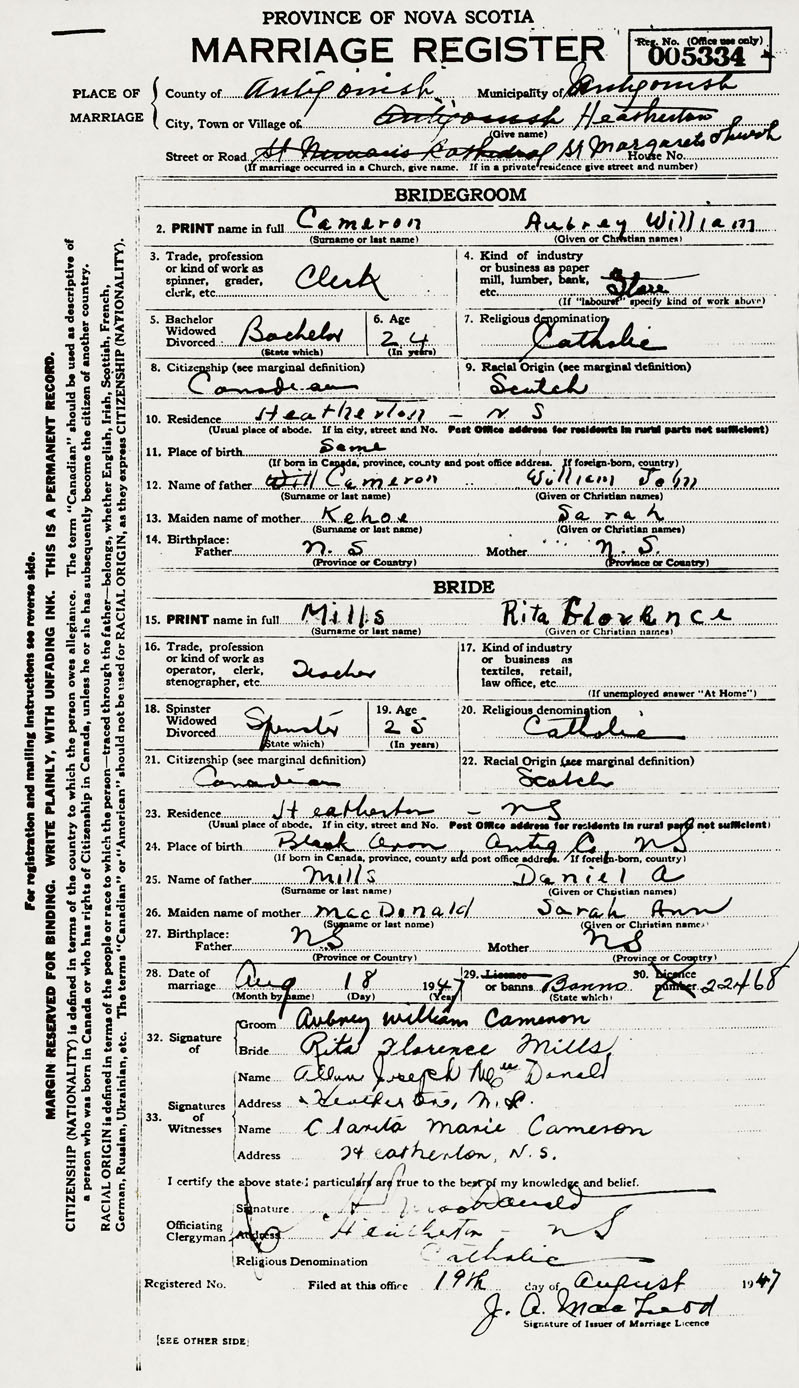 PROVINCE OF NOVA SCOTIA
MARRIAGE REGISTER
Reg. No. (Office use only)
005334
PLACE OF MARRIAGE
County of Antigonish Municipality of Antigonish
City, Town or Village of Antigonish Heatherton
(Give name)
Street or Road St Ninian's Cathedral St Margarets Church House No.
(If marriage occurred in a Church, give name. If in a private residence give street and number)
BRIDEGROOM
2. PRINT name in full Cameron Aubrey William
(Surname or last name) (Given or Christian names)
3. Trade, profession or kind of work as spinner, grader, clerk, etc. Clerk
4. Kind of industry or business as paper mill, lumber, bank, etc. Store
(If "labourer" specify kind of work above)
5. Bachelor Widowed Divorced Bachelor
(State which)
6. Age 24
(In years)
7. Religious denomination
Catholic
8. Citizenship (see marginal definition)
Canadian
9. Racial Origin (see marginal definition)
Scotch
10. Residence Heatherton - N S
(Usual place of abode. If in city, street and No. Post Office address for residents in rural parts not sufficient)
11. Place of birth Same
(If born in Canada, province, county and post office address. If foreign-born, country)
12. Name of father Will Cameron William John
(Surname or last name) (Given or Christian names)
13. Maiden name of mother Kehoe Sarah
(Surname or last name) (Given or Christian names)
14. Birthplace:
Father N. S Mother N. S.
(Province or Country) (Province or Country)
BRIDE
15. PRINT name in full Mills Rita Florence
(Surname or last name) (Given or Christian names)
16. Trade, profession or kind of work as operator, clerk, stenographer, etc. Teacher
17. Kind of industry or business as textiles, retail, law office, etc.
(If unemployed answer "At Home")
18. Spinster Widowed Divorced Spinster
(State which)
19. Age 25
(In years)
20. Religious denomination
Catholic
21. Citizenship (see marginal definition)
Canadian
22. Racial Origin (see marginal definition)
Scotch
23. Residence Heatherton - NS
(Usual place of abode. If in city, street and No. Post Office address for residents in rural parts not sufficient)
24. Place of birth Black Avon, Antig Co, NS
(If born in Canada, province, county and post office address. If foreign-born, country)
25. Name of father Mills Daniel A
(Surname or last name) (Given or Christian names)
26. Maiden name of mother MacDonald Sarah Ann
(Surname or last name) (Given or Christian names)
27. Birthplace:
Father NS Mother NS
(Province or Country) (Province or Country)
28. Date of marriage Aug 18 1947
(Month by name) (Day) (Year)
29. Licence or banns Banns
(State which)
30. Licence number 22468
32. Signature of
Groom Aubrey William Cameron
Bride Rita Florence Mills
33. Signatures of Witnesses
Name Allan Joseph MacDonald
Address Heatherton, N.S.
Name Clarita Marie Cameron
Address Heatherton, N.S.
I certify the above stated particulars are true to the best of my knowledge and belief.
Officiating Clergyman
Signature MacDonald
Address Heatherton - NS
Religious Denomination Catholic
Registered No. Filed at this office 19th day of August 1947
J. A. MacLeod
Signature of Issuer of Marriage Licence
[SEE OTHER SIDE]
For registration and mailing instructions see reverse side.
MARGIN RESERVED FOR BINDING. WRITE PLAINLY, WITH UNFADING INK. THIS IS A PERMANENT RECORD.
CITIZENSHIP (NATIONALITY) is defined in terms of the country to which the person owes allegiance. The term "Canadian" should be used as descriptive of
a person who was born in Canada or who has rights of Citizenship in Canada, unless he or she has subsequently become the citizen of another country.
RACIAL ORIGIN is defined in terms of the people or race to which the person—traced through the father—belongs, whether English, Irish, Scottish, French,
German, Russian, Ukrainian, etc. The terms "Canadian" or "American" should not be used for RACIAL ORIGIN, as they express CITIZENSHIP (NATIONALITY).